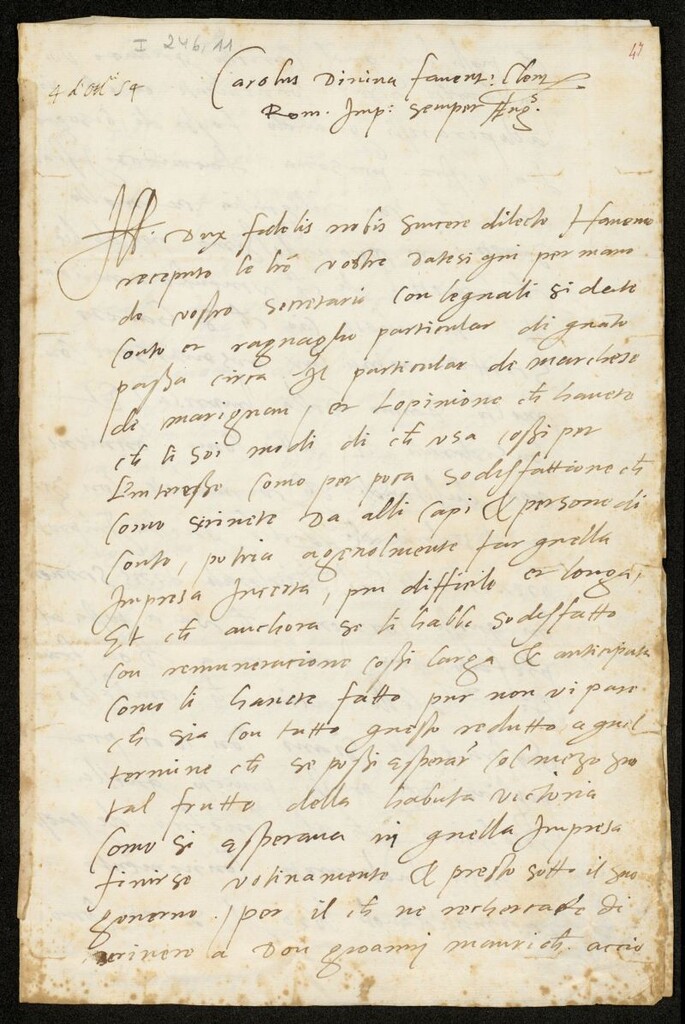 I 246, 11
47
4 d'Ott. 54
Carolus Divina favent: Clem
Rom. Imp: semper Augs.
Ill. Dux fidelis nobis sincere dilecte Havemo
receputo le lre vostre datesi qui per mano
de vostro Secretario con lequali si dete
conto et raguaglio particular di quanto
passa circa il particular de marchese
de marignan, et l'opinione ch havete
ch li soi modi di ch usa cossi per
l'interesse como per poca sodisfattione ch
como scrivete da alli capi & persone di
conto, potria agevolmente far quella
Impresa Incerta, piu difficile et longa,
Et ch anchora se li habbi sodisfatto
con remuneracione cossi larga & anticipata
como li havete fatto pur non vi pare
ch sia con tutto questo redutto a quel
termine ch se possi asperar col mezo suo
tal frutto della habuta victoria
Como si asperava in quella Impresa
finirse & presto sotto il suo
governo. / per il ch ne rechercate di
scrivere a Don gioanni maurich. accio